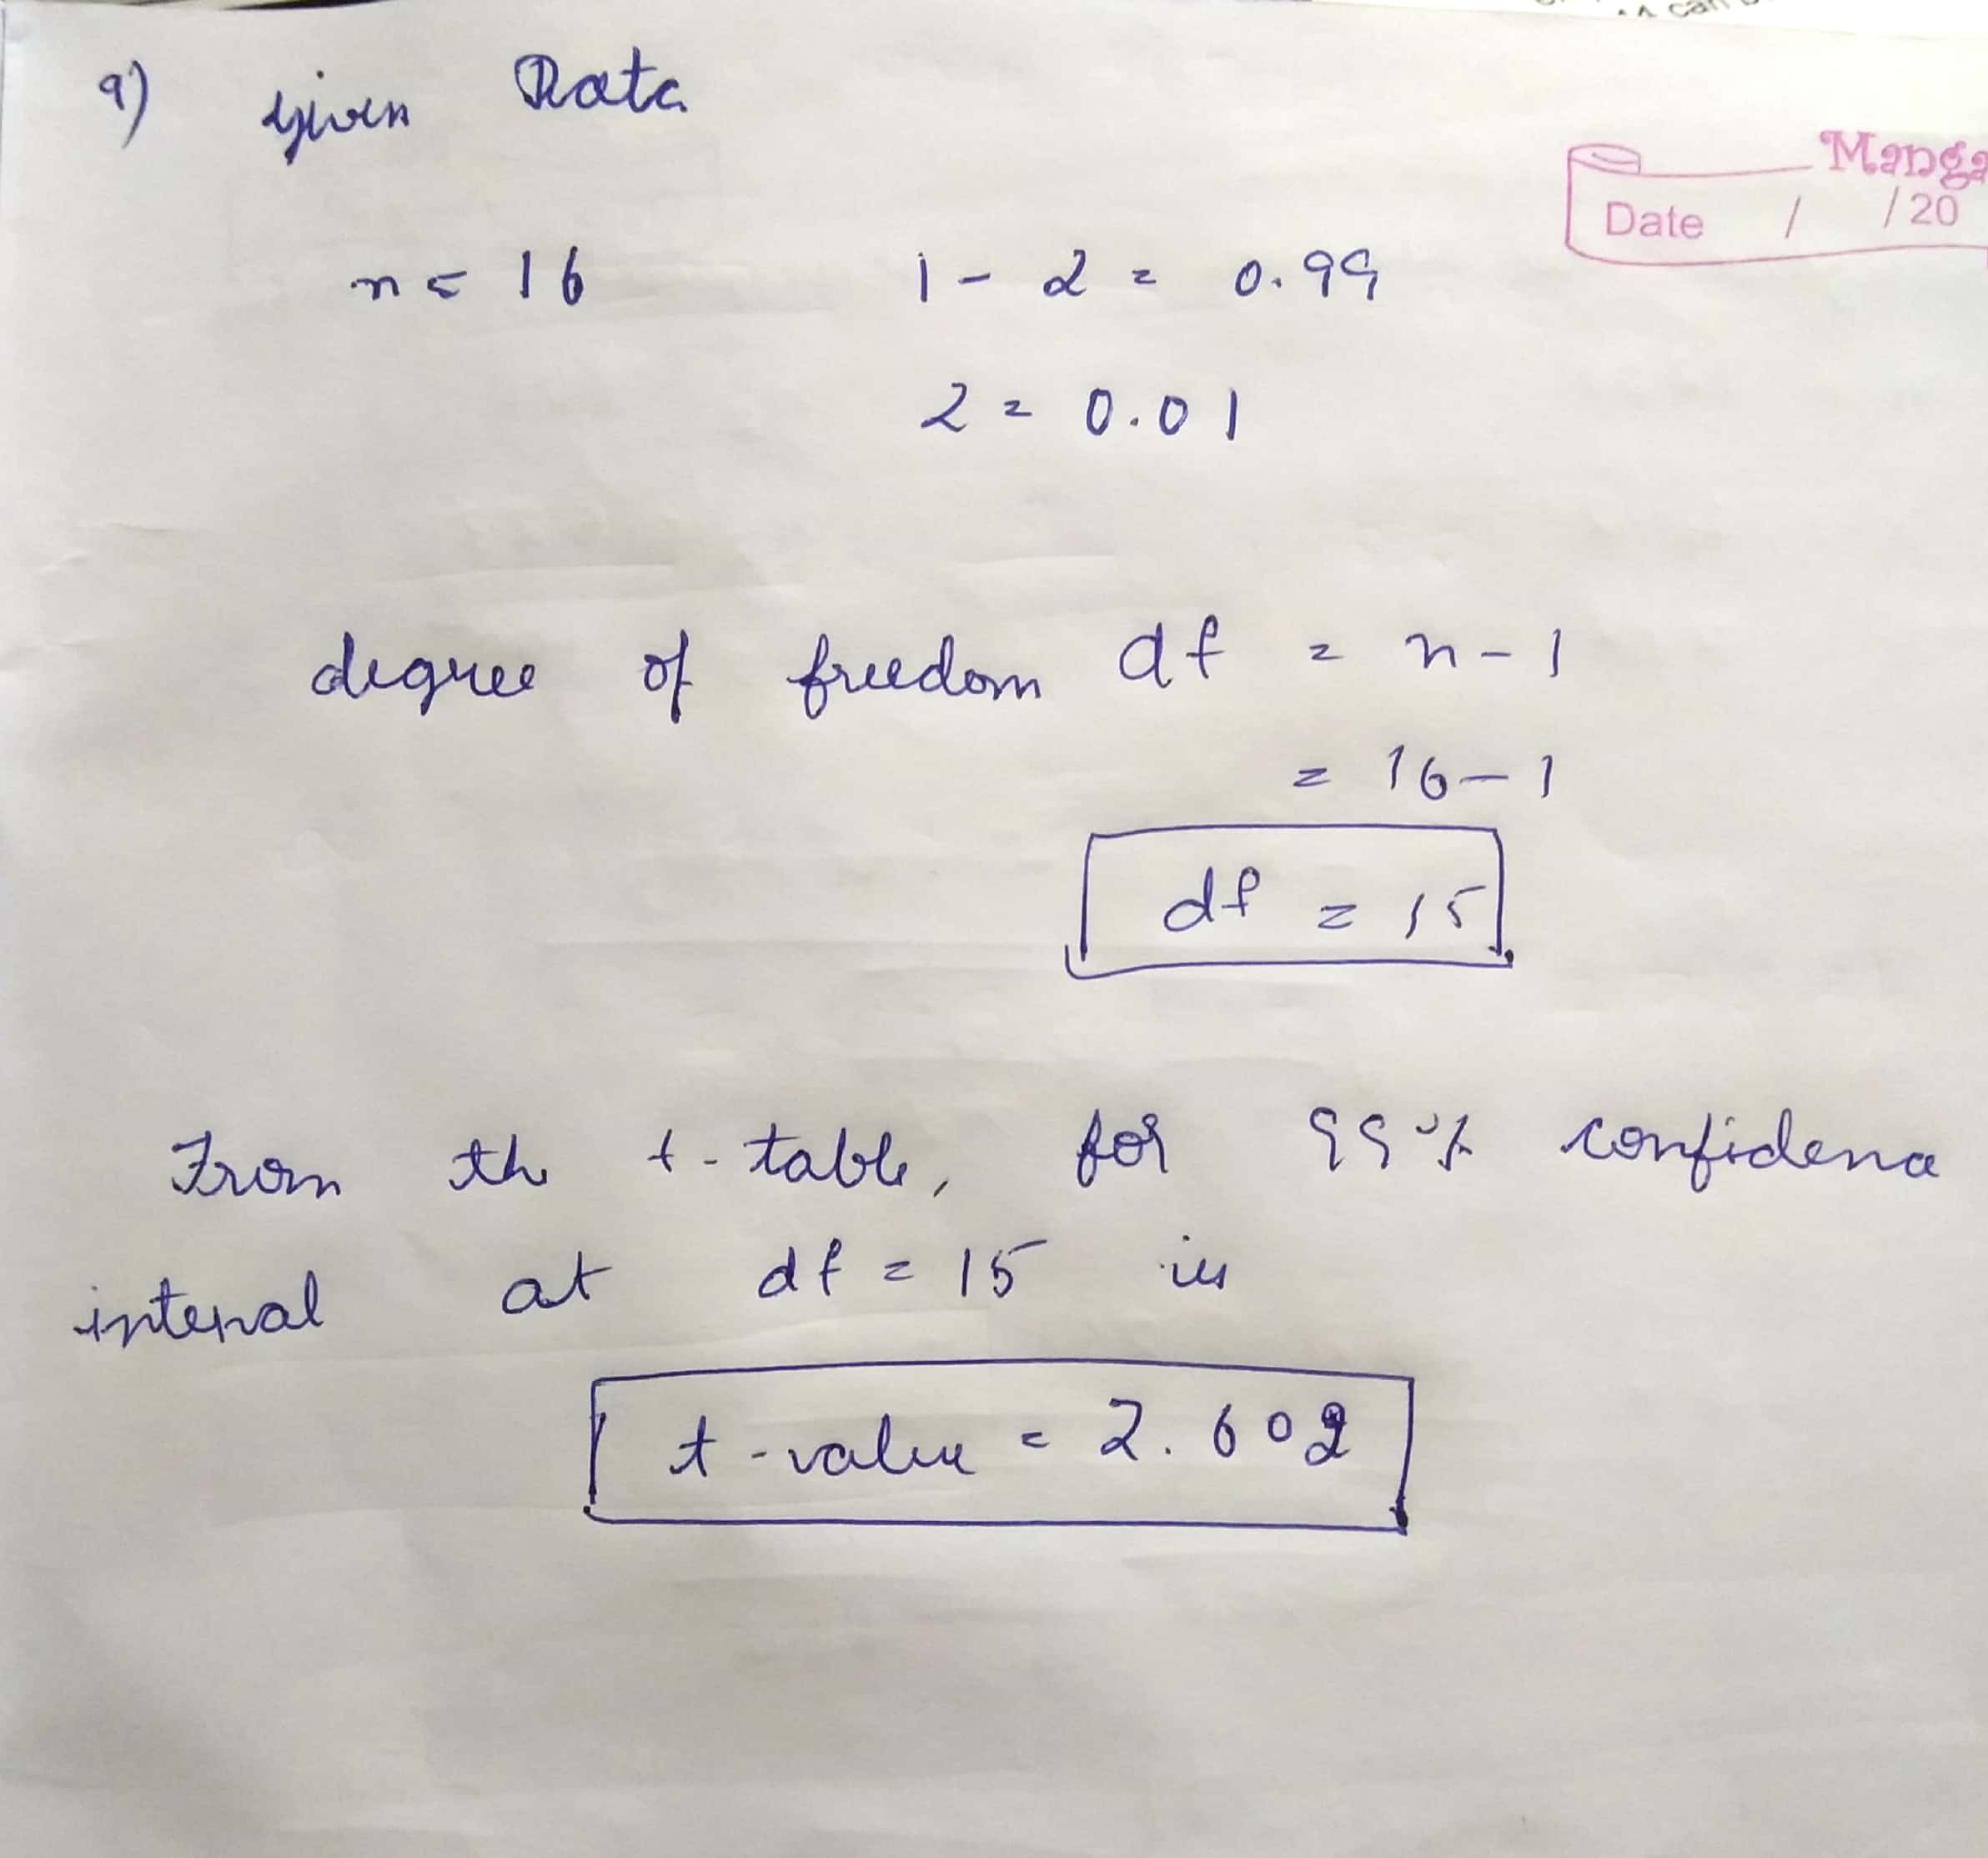 9) Given Data
Manga
Date / /20
n = 16 1 - α = 0.99
α = 0.01
degree of freedom df = n - 1
= 16 - 1
df = 15
From the t-table, for 99% confidence
interval at df = 15 is
t-value = 2.602